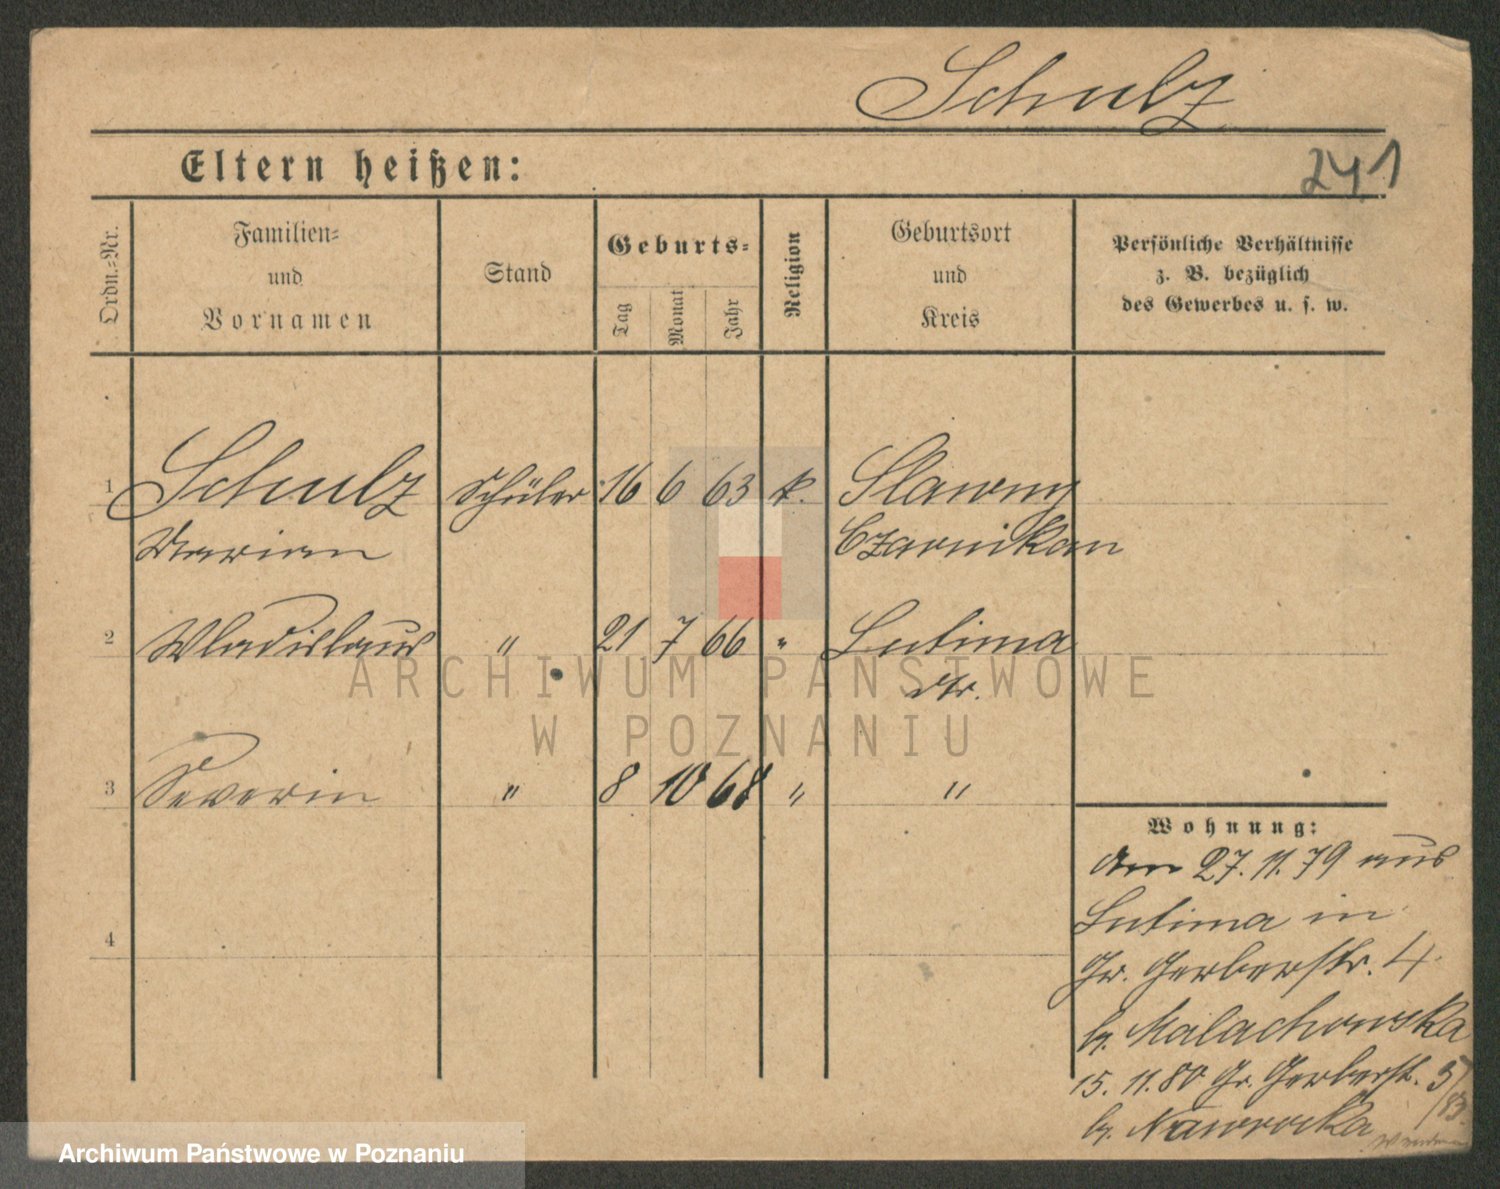 Schulz
Eltern heißen:
241
Ordn.-Nr.
Familien-
und
Vornamen
Stand
Geburts-
Tag
Monat
Jahr
Religion
Geburtsort
und
Kreis
Persönliche Verhältnisse
z. B. bezüglich
des Gewerbes u. s. w.
1 Schulz Schüler 16 6 63 k. Slawny
Marian Czarnikau
2 Wladislaus " 21 7 66 " Lutinia
dto.
3 Severin " 8 10 68 " "
4
Wohnung:
Am 27.11.79 aus
Lutinia in
Gr. Gerberstr. 4
b. Malachowska
15.11.80 Gr. Gerberstr. 5
/83
b. Nawrocka
ARCHIWUM PAŃSTWOWE
W POZNANIU
Archiwum Państwowe w Poznaniu